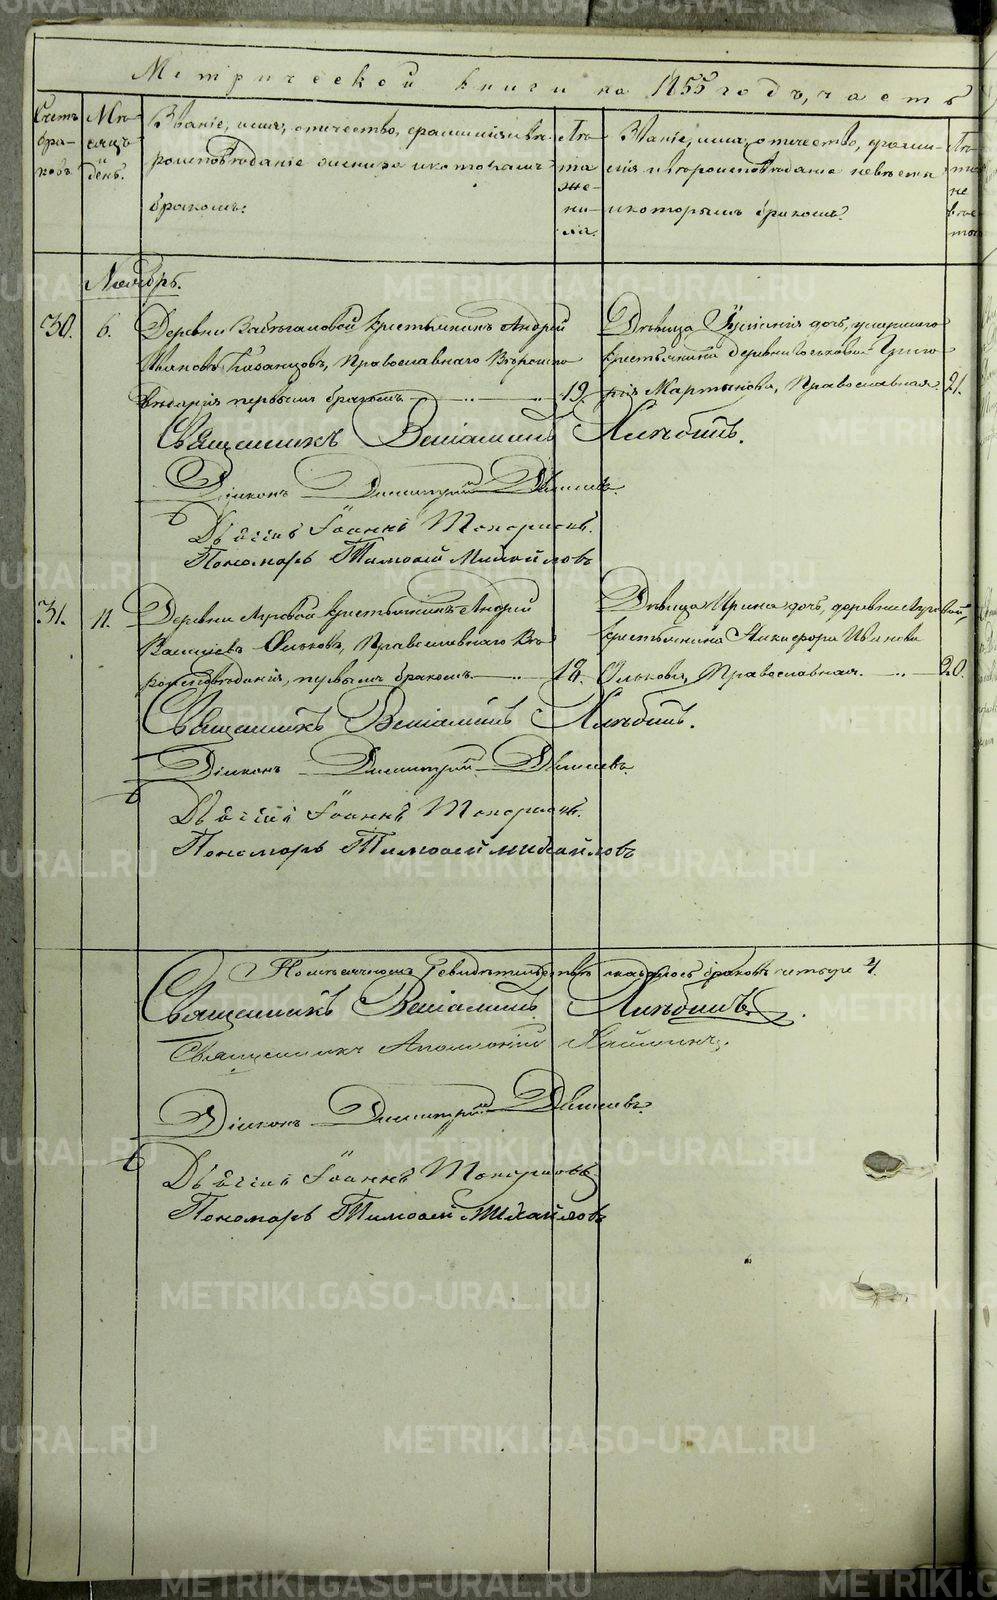 Метрической книги на 1855 годъ, часть
Счетъ браковъ
Мѣсяцъ и день.
Званіе, имя, отчество, фамилія и вѣроисповѣданіе жениха и которымъ бракомъ.
Лѣта жениха.
Званіе, имя, отчество, фамилія и вѣроисповѣданіе невѣсты и которымъ бракомъ.
Лѣта невѣсты
Ноябрь.
30. 6. Деревни крестьянинъ Андрей
Ивановъ Казанцовъ, Православнаго Вѣроиспо
вѣданія первымъ бракомъ 19.
Дѣвица дочь, умершаго
крестьянина деревни Григо
рія Мартынова, Православная 21.
Священникъ Веніаминъ
Діаконъ Димитрій
Дьячій Іоаннъ Топорковъ.
Пономарь Тимоѳей Михайловъ
31. 11. Деревни крестьянинъ Андрей
Ольковъ, Православнаго Вѣ
роисповѣданія, первымъ бракомъ 18.
Дѣвица Ирина дочь, деревни
крестьянина Никифора Иванова
Олькова, Православная. 20.
Священникъ Веніаминъ
Діаконъ Димитрій
Дьячій Іоаннъ Топорковъ.
Пономарь Тимоѳей Михайловъ
По оказалось браковъ четыре 4.
Священникъ Веніаминъ
Священникъ Аполлоній
Діаконъ Димитрій
Дьячій Іоаннъ Топорковъ
Пономарь Тимоѳей Михайловъ
METRIKI.GASO-URAL.RU